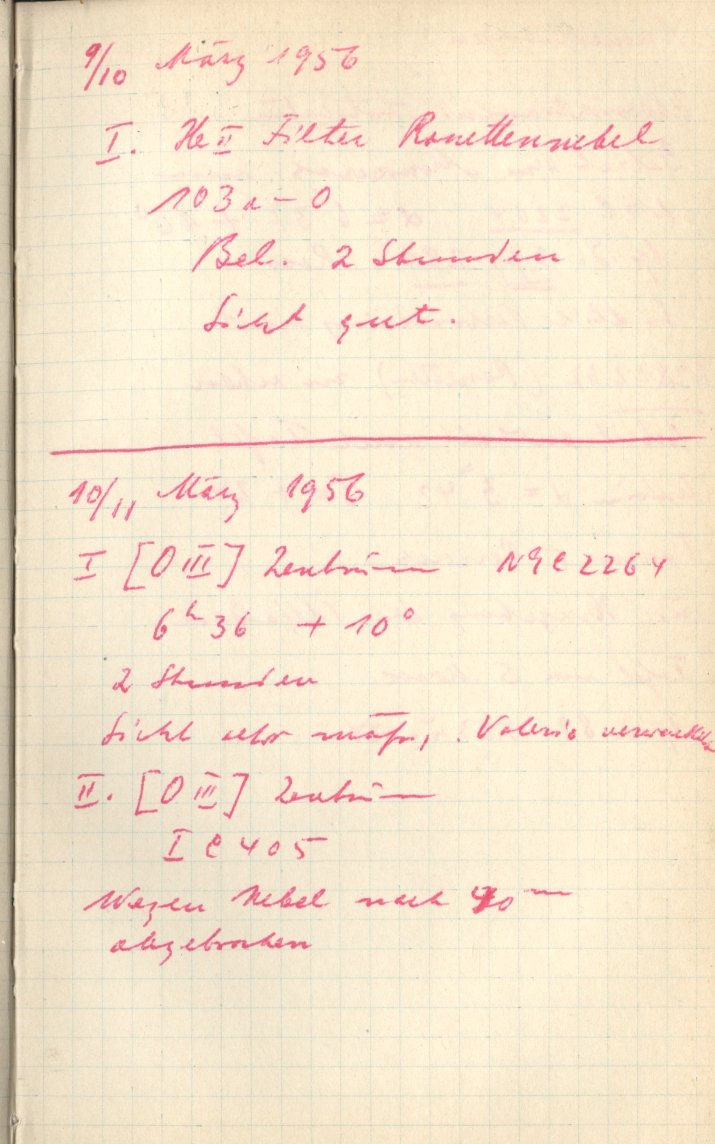 9/10 März 1956
I. He II Filter Rosettennebel
103a-O
Bel. 2 Stunden
Sicht gut.
10/11 März 1956
I [O III] Zentrum NGC 2264
6h 36 + 10°
2 Stunden
Sicht sehr mäß,
II. [O III] Zentrum
IC 405
Wegen Nebel nach 40m
abgebrochen